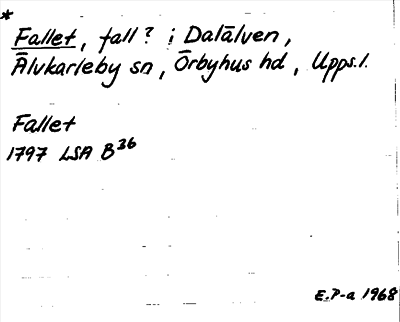 *
Fallet, fall? i Dalälven,
Älvkarleby sn, Örbyhus hd, Upps.l.
Fallet
1797 LSA B36
E.P-a 1968